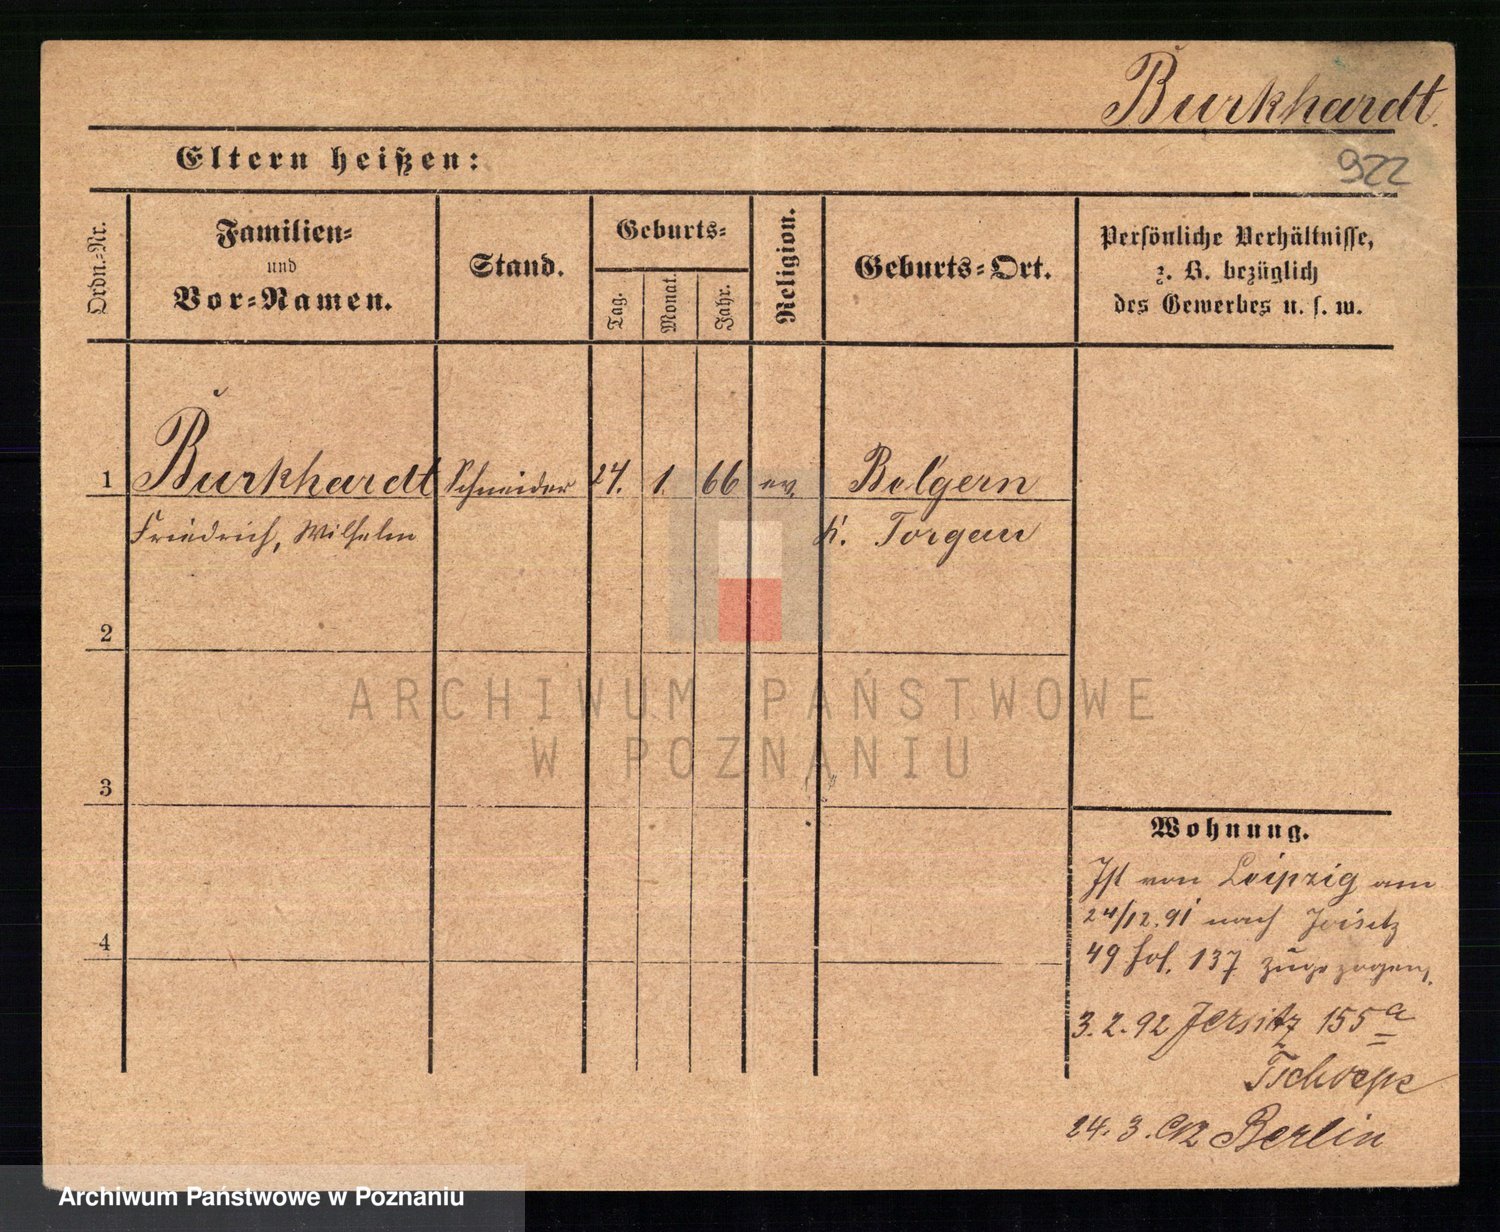 Burkhardt.
Eltern heißen:
922
Ordn.-Nr.
Familien-
und
Vor-Namen.
Stand.
Geburts-
Tag.
Monat.
Jahr.
Religion.
Geburts-Ort.
Persönliche Verhältnisse,
z. B. bezüglich
des Gewerbes u. s. w.
1 Burkhardt Schneider 24. 1. 66 ev. Belgern
Friedrich, Wilhelm K. Torgau
2
3
4
Wohnung.
Ist von Leipzig am
24/12. 91 nach Jersitz
49 fol. 137 zugezogen.
3. 2. 92 Jersitz 155a
Tschoepe
24. 3. 92 Berlin
ARCHIWUM PAŃSTWOWE
W POZNANIU
Archiwum Państwowe w Poznaniu